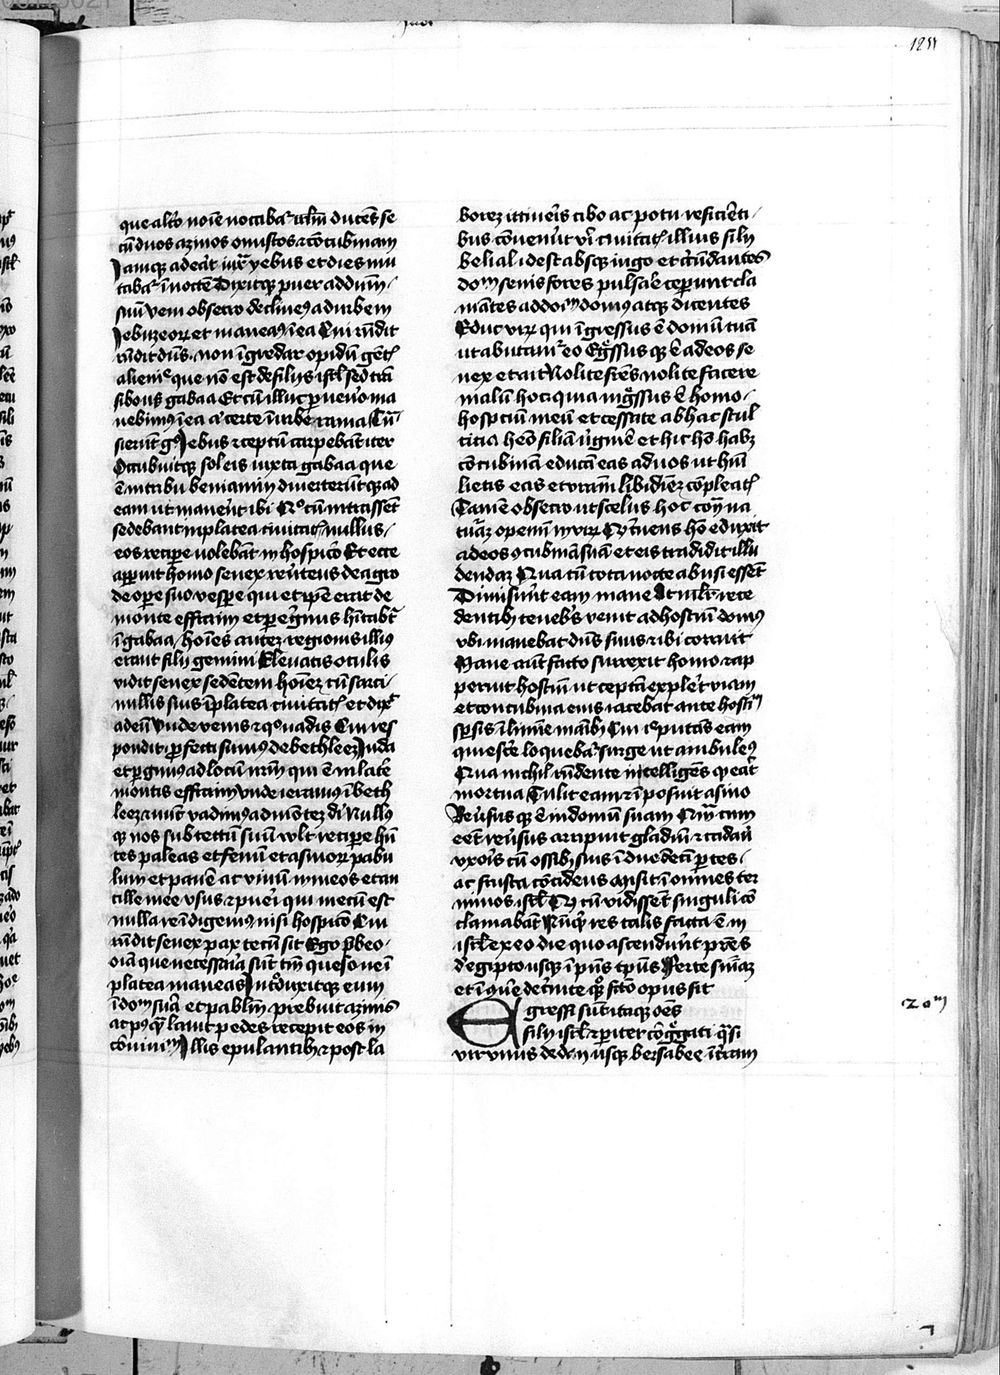 125
que altero noīe vocabat᷑ ihrlm ducēs se
cū duos azinos onustos ⁊ cōcubinam
Jamq; aderāt iux᷑ yebus et dies mu
tabat᷑ ī noctē Dixitq; puer ad dūm
suū veni obsecro declinem⁹ ad urbem
Jebuzeoꝝ et maneam⁹ ī ea Cui rn̄dit
rn̄dit dn̄s non īgrediar opidū gent᷑
aliene que nō est de filijs isrl᷑ sed trā
sibo usq; gabaa Et cū illuc ꝑuen᷑o ma
nebim⁹ ī ea a᷑ certe ī urbe rama Cū
sierūt g⁰ Jebus ⁊ ceptū carpebāt iter
Occubuitq; sol eis iuxta gabaa que
ē in tribu beniamin diuerterūtq; ad
eam ut manerēt ibi Q⁰ cū intrassēt
sedebant in platea ciuitat᷑ ⁊ nullus
eos recipe uolebāt in hospico Et ecce
apparuit homo senex reuertens de agro
de oꝑe suo vespe qui et ipē erat de
monte effraim et ꝑegrinus hītabat᷑
ī gabaa hoīes autez regionis illius
erant filij gemini Eleuatis oculis
vidit senex sedētem hoīez cū sarci
nullis suis ī platea ciuitat᷑ et dix᷑
ad eū Vnde venis ⁊ quo vadis Cui res
pondit ꝓfecti sumus de bethleez Juda
et ꝑgim⁹ ad locū nr̄m qui ē in late᷑
montis effraim vnde ieramus ī beth
leez ⁊ nūc vadim⁹ ad
nos sub tectū suū vult recipe hn̄
tes paleas et fenū et asinoꝝ pabu
lum et panē ac vinū in meos et an
cille mee vsus ⁊ pueri qui mecū est
nulla re īdigemus nisi hospico Cui
rn̄dit senex pax tecū sit Ego p̄beo
oīa que necessaria sūt tm̄ queso ne ī
platea maneas Introduxitq; eum
ī domū suā et pablm̄ prebuit azinis
ac postq; lauīt pedes recepit eos in
cōuiuiū Jllis epulantibus ⁊ post la
borez itineris cibo ac potu reficiēti
bus cōuenerūt viri ciuitat᷑ illius filij
belial id est absq; iugo et circūdantes
domū senis fores pulsare ceperunt cla
mātes ad dom̄ domus atq; dicentes
Educ virū qui īgressus ē domū tuā
ut abutamur eo Egressusq; ē ad eos se
nex et ait Nolite frēs nolite facere
malū hoc quia ingressus ē homo
hospicium meū et cessate ab hac stul
ticia heō filiā virginē et hic hō habz
cōcubinā educā eas ad vos ut hūi
lietis eas et vr̄am libidinez cōpleat᷑
Tamē obsecro ut scelus hoc
in virū
ad eos ꝯcubinā suā et eis tradidit illu
dendaz Qua cū tota nocte abusi essēt
Dimiserūt eam mane At mulier rece
dentibus tenebris venit ad hostiū domus
vbi manebat dn̄s suus ⁊ ibi corruit
Mane aūt facto surrexit homo ⁊ ap
peruit hostiū ut ceptā expleret viam
et concubina eius iacebat ante hostiū
sparsis ī limine manibus Cui putās eam
quiescere loquebat᷑ surge ut ambulem⁹
Qua nichil rn̄dente intelligēs qd erat
mortua Tulit eam ⁊ īposuit asino
Reuersusq; ē in domū suam Quam cum
eēt reuersus arripuit gladiū ⁊ cadauer
vxoris cū ossibus suis ī duodecī partes
ac frusta cōcidens misit ī omnes ter
minos isrl᷑ Qd cū vidissēt singuli cō
clamabāt Nūqm̄ res talis facta ē in
isrl᷑ ex eo die quo ascenderūt patres
de egipto usq; ī presens tempus Ferte sn̄iaz
et ī comune decernite quod facto opus sit
Egressi sūt itaq; oēs
filij isrl᷑ ⁊ pariter cōgregati quasi
vir vnus de dan usq; bersabee ī terram
20ᵐ